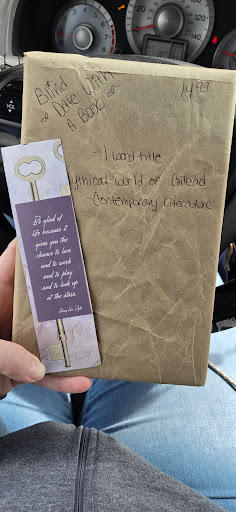 Blind
Date With
A Book
14.99
- 1 word title
ythical world of Gilead
- Contemporary Literature
Be glad of
life because it
gives you the
chance to love
and to work
and to play
and to look up
at the stars.
Henry Van Dyke